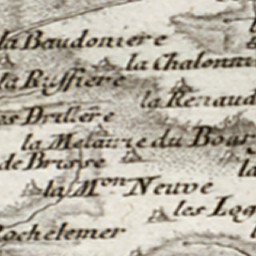 la Baudoniere
la Chalonni
la Ruffiere
la Renaud
es Drillere
la Metairie du Bois
de Brisse
la
la Mon Neuve
les Log
Rochelemer